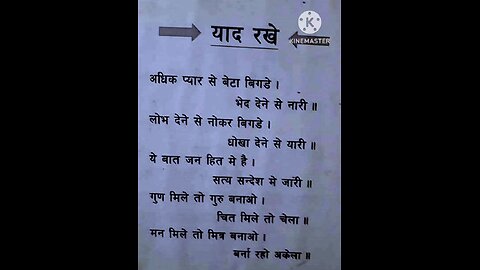 याद रखे
K
KINEMASTER
अधिक प्यार से बेटा बिगडे ।
भेद देने से नारी ॥
लोभ देने से नोकर बिगडे ।
धोखा देने से यारी ॥
ये बात जन हित मे है ।
सत्य सन्देश मे जारी ॥
गुण मिले तो गुरु बनाओ ।
चित मिले तो चेला ॥
मन मिले तो मित्र बनाओ ।
बर्ना रहो अकेला ॥